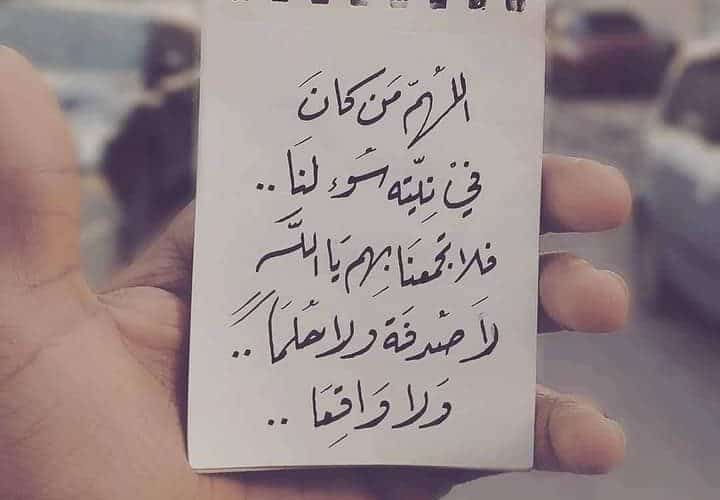 اللهُمّ مَن كانَ
في نِيّته سُوء لنَا ..
فلا تجمعنَا بِهم يَا اللَّه
لاَ صْدفَة ولا حُلمَاً ..
وَلا وَاقِعَا ..